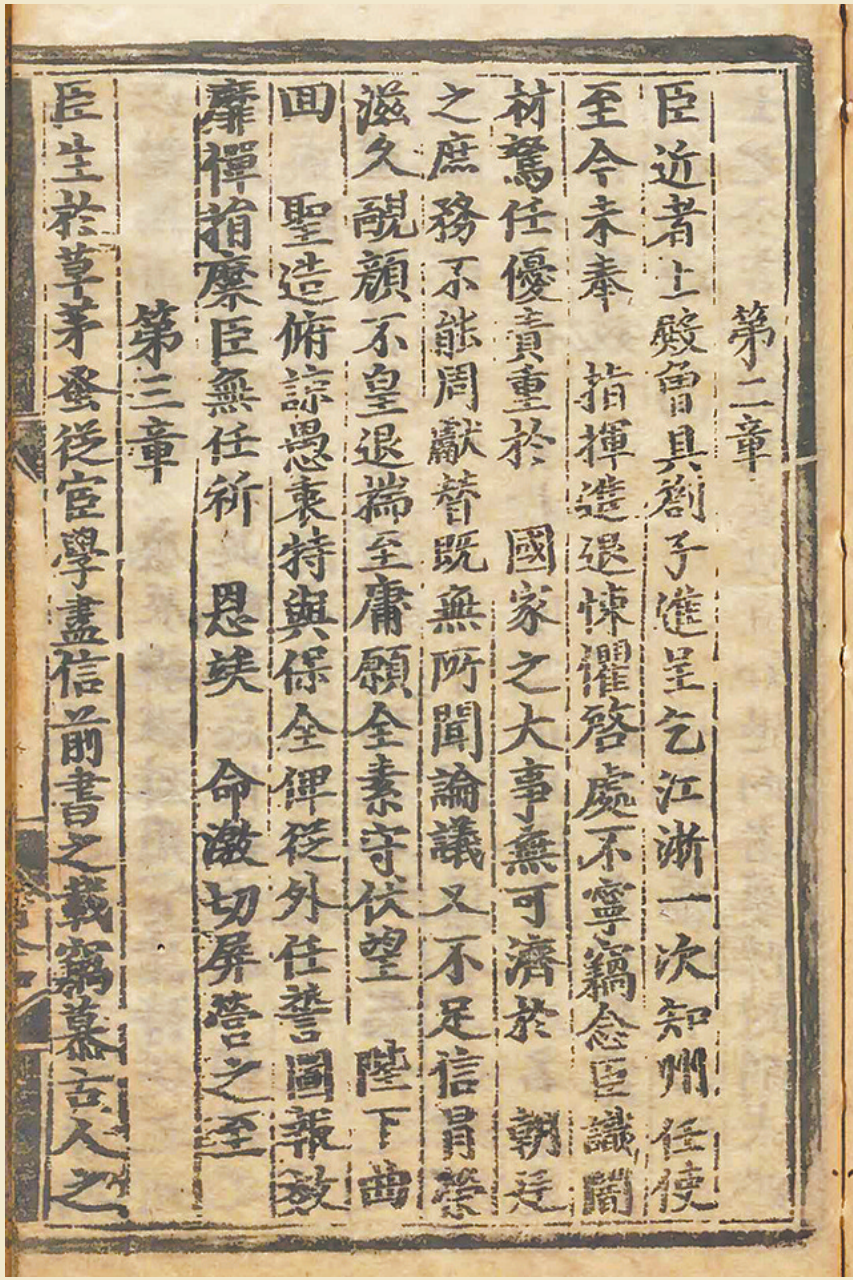 第二章
臣近者上殿曾具劄子進呈乞江淅一次知州任使
至今未奉 指揮進退悚懼啓處不寧竊念臣識闇
材駑任優責重於 國家之大事無可濟於 朝廷
之庶務不能周獻替既無所聞論議又不足信冒榮
滋久靦顔不皇退揣至庸願全素守伏望 陛下曲
回 聖造俯諒愚衷特與保全俾從外任誓圖報效
靡憚捐糜臣無任祈 恩竢 命激切屏營之至
第三章
臣生於草茅蚤從宦學盡信前書之載竊慕古人之